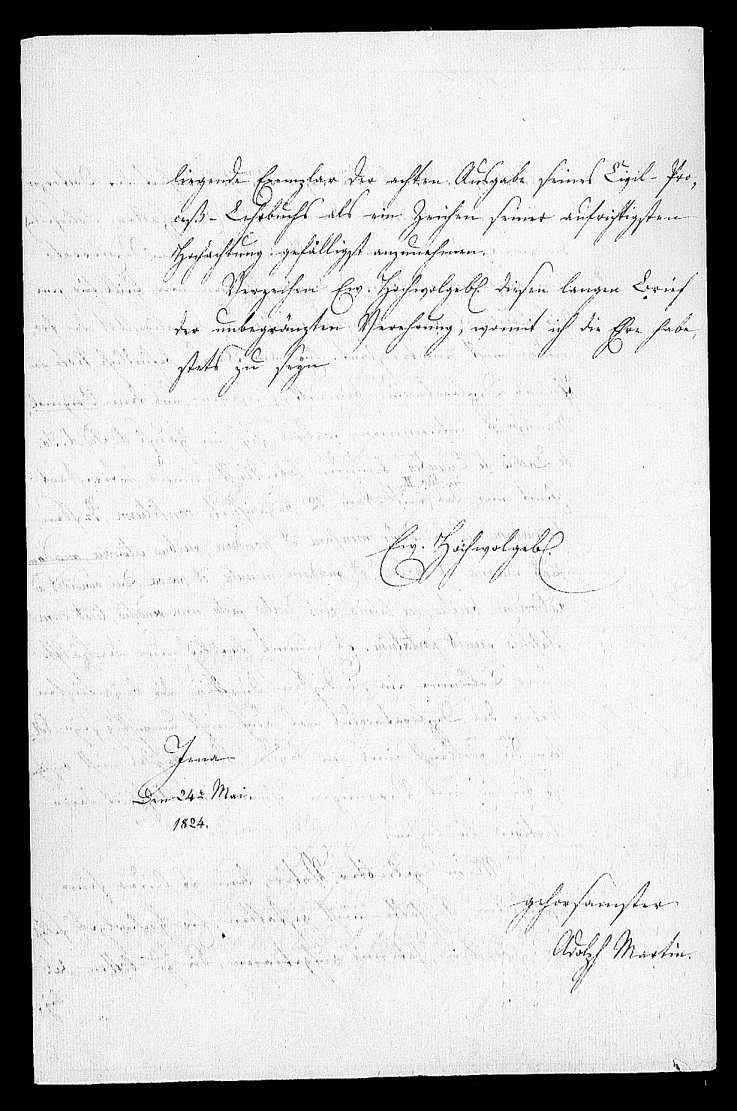 liegende Exemplar der achten Ausgabe seines Civil-Pro,
ceß-Lehrbuchs als ein Zeichen seiner aufrichtigsten
Hochachtung gefälligst anzunehmen.
Verzeihen Ew. Hochwolgeb. diesen langen Brief
der unbegränzten Verehrung, womit ich die Ehre habe,
stets zu seyn
Ew. Hochwolgeb.
Jena
Den 24n Mai.
1824.
gehorsamster
Adolph Martin.